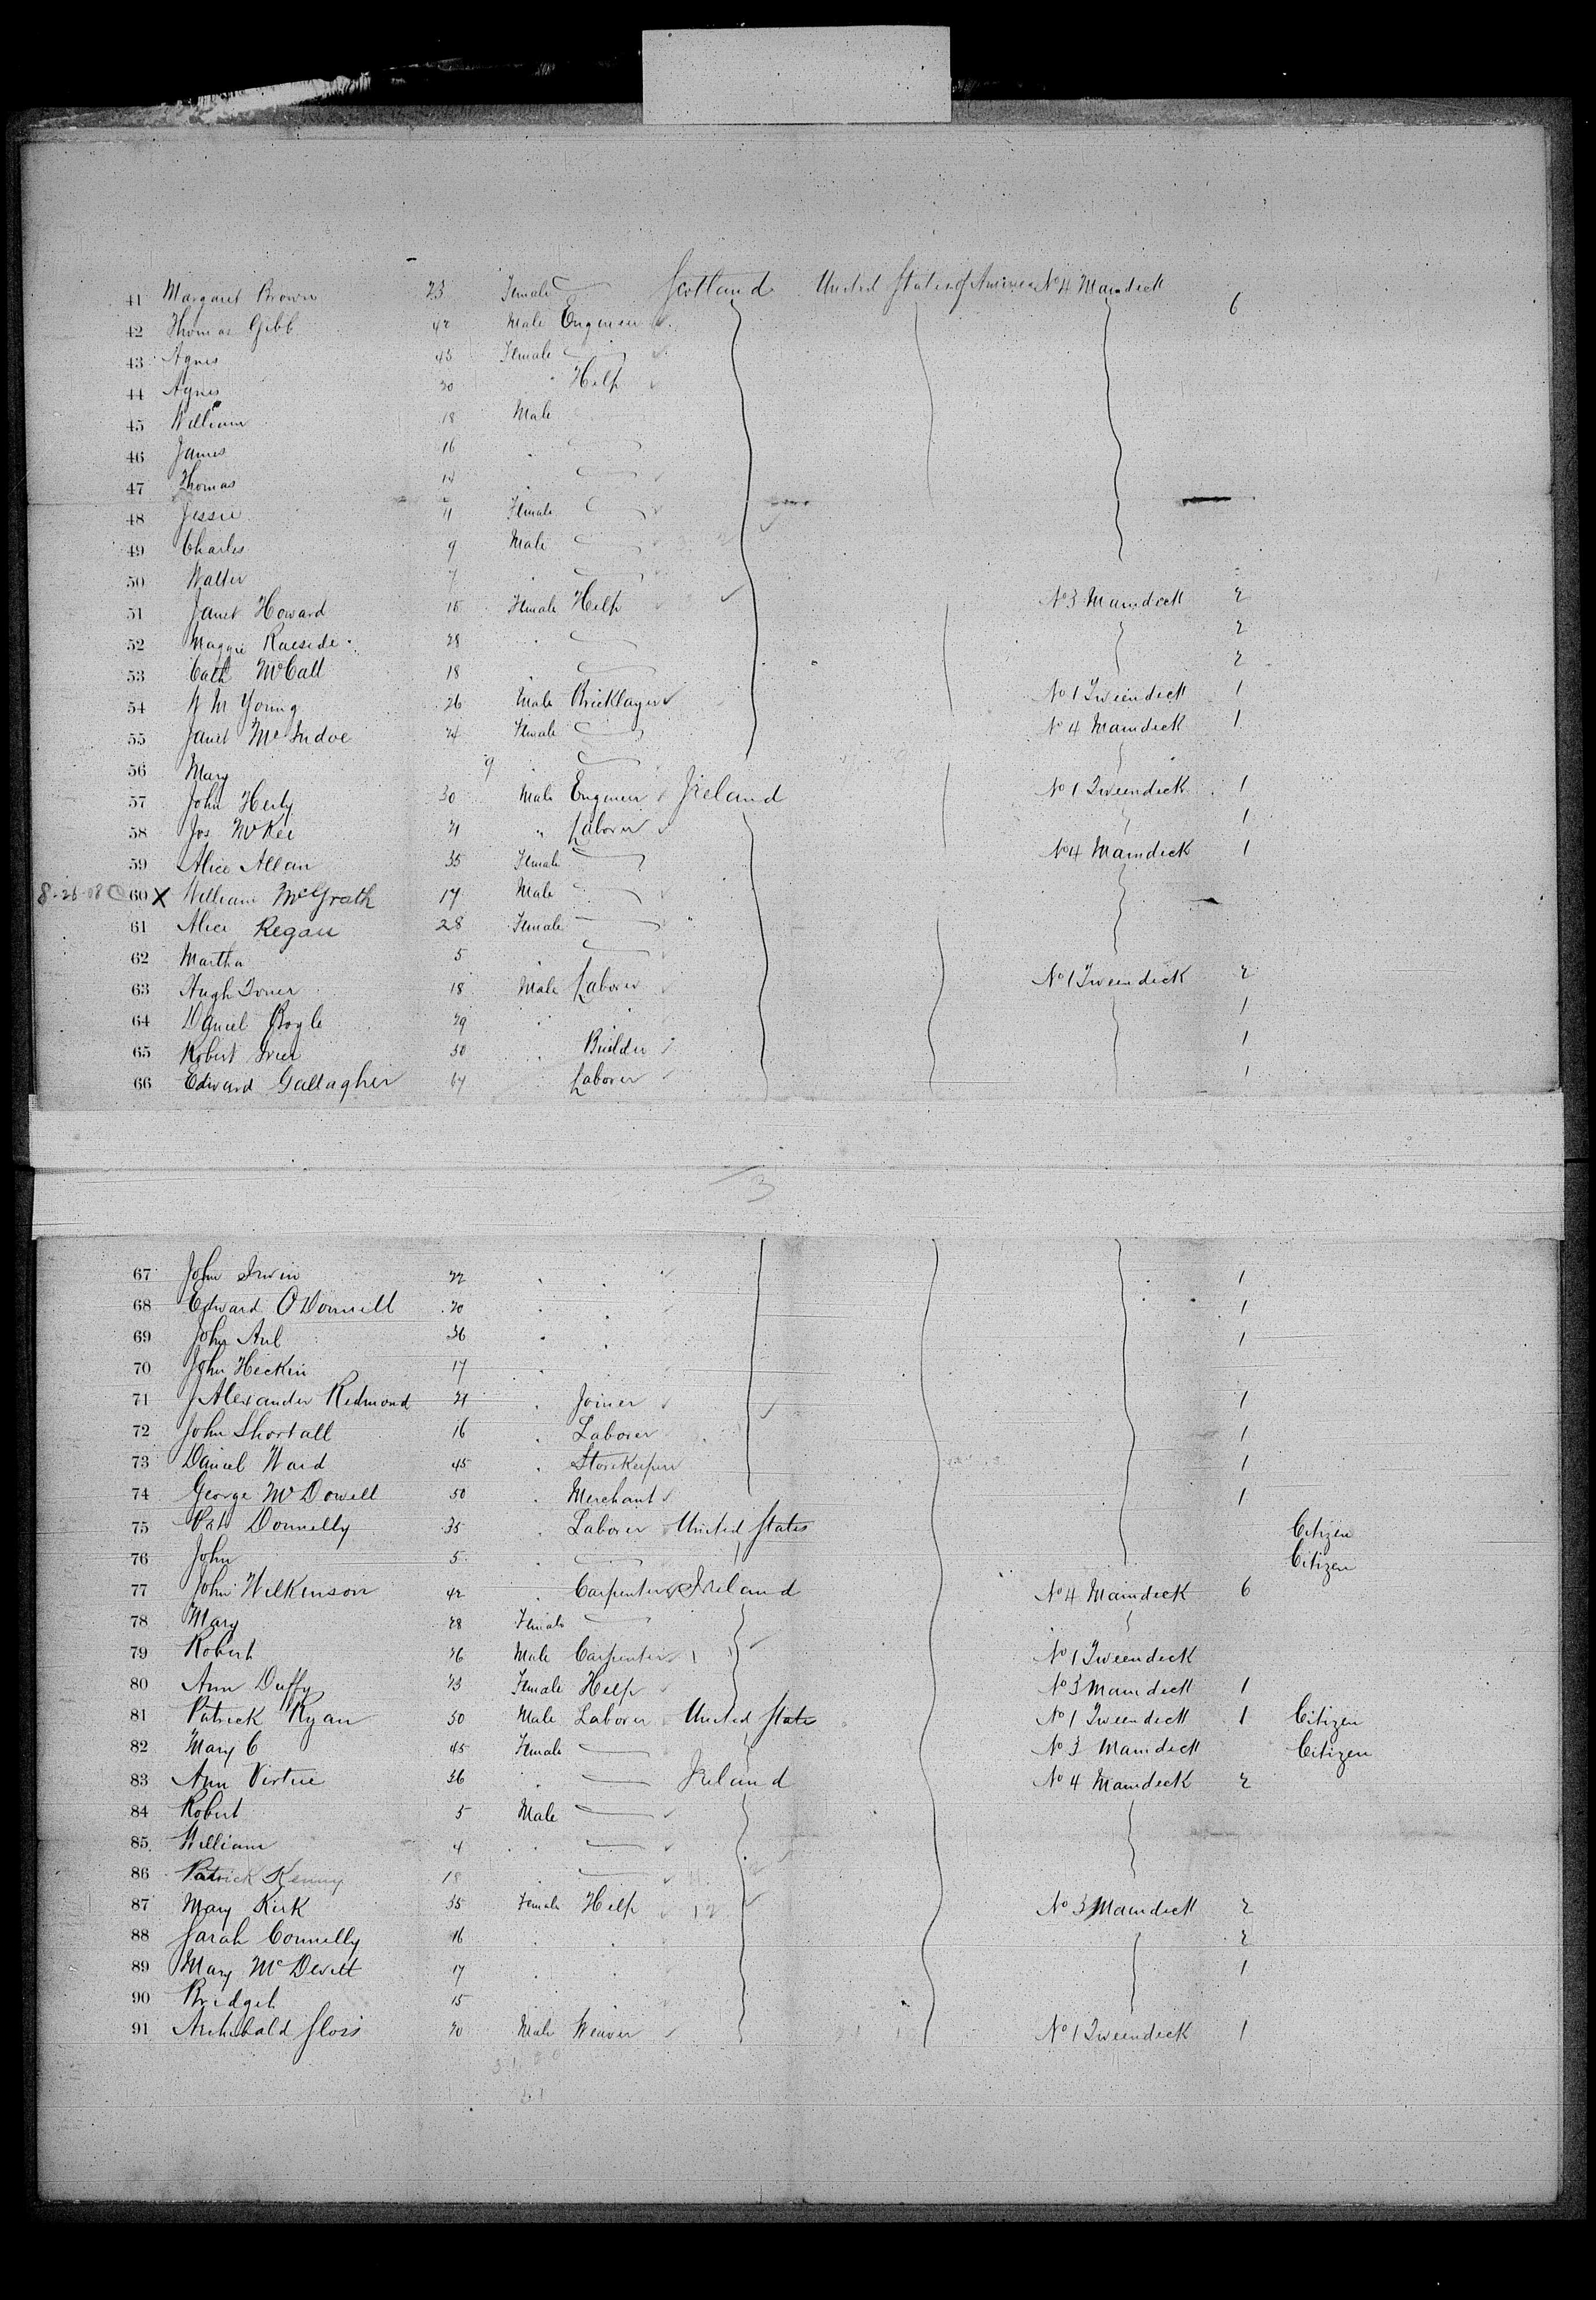 41 Margaret Brown 23 Female Scotland United States of America No 4 Maindeck 6
42 Thomas Gibb 42 Male Engineer
43 Agnes 45 Female
44 Agnes 20 " Help
45 William 18 Male
46 James 16
47 Thomas 14
48 Jessie 11 Female
49 Charles 9 Male
50 Walter 7
51 Janet Howard 15 Female Help No 3 Maindeck 2
52 Maggie Raeside 28 2
53 Cath McCall 18 2
54 Wm Young 26 Male Bricklayer No 1 Tweendeck 1
55 Janet McIndoe 24 Female No 4 Maindeck 1
56 Mary 9
57 John Herty 30 Male Engineer Ireland No 1 Tweendeck 1
58 Jos McKee 21 " Laborer 1
59 Alice Allan 35 Female No 4 Maindeck 1
8-26-08 60 X William McGrath 17 Male
61 Alice Regan 28 Female
62 Martha 5
63 Hugh Toner 18 Male Laborer No 1 Tweendeck 2
64 Daniel Boyle 29 1
65 Robert 50 Builder 1
66 Edward Gallagher 64 Laborer 1
3
67 John Irwin 22 1
68 Edward O'Donnell 20 1
69 John Aul 36 1
70 John Heckin 17
71 Alexander Redmond 21 Joiner 1
72 John Shortall 16 Laborer 1
73 Daniel Ward 45 Storekeeper 1
74 George McDowell 50 Merchant 1
75 Pat Donnelly 35 Laborer United States Citizen
76 John 5 Citizen
77 John Wilkinson 42 Carpenter Ireland No 4 Maindeck 6
78 Mary 28 Female
79 Robert 26 Male Carpenter No 1 Tweendeck
80 Ann Duffy 23 Female Help No 3 Maindeck 1
81 Patrick Ryan 50 Male Laborer United States No 1 Tweendeck 1 Citizen
82 Mary C 45 Female No 3 Maindeck Citizen
83 Ann Virtue 36 Ireland No 4 Maindeck 2
84 Robert 5 Male
85 William 4
86 Patrick Kenny 18
87 Mary Kirk 35 Female Help 12 No 3 Maindeck 2
88 Sarah Connelly 16 2
89 Mary McDevitt 17 1
90 Bridget 15
91 Archibald Gloss 20 Male Weaver No 1 Tweendeck 1